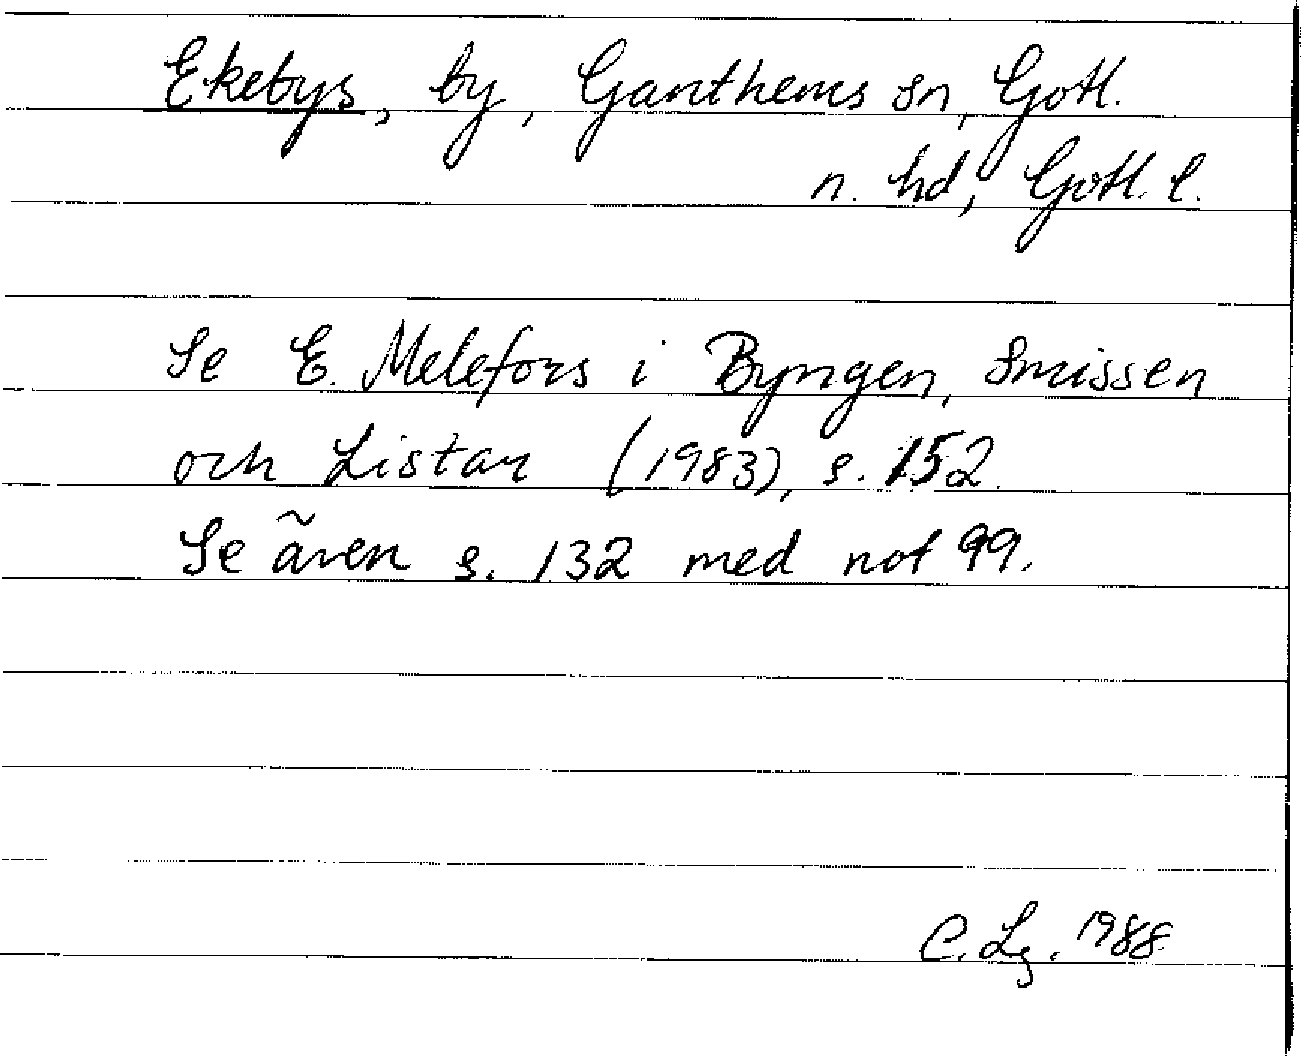 Ekebys, by, Ganthems sn, Gotl.
n. hd, Gotl. l.
Se E. Melefors i Byngen, Smissen
och Listar (1983), s. 152.
Se även s. 132 med not 99.
C. Lg. 1988